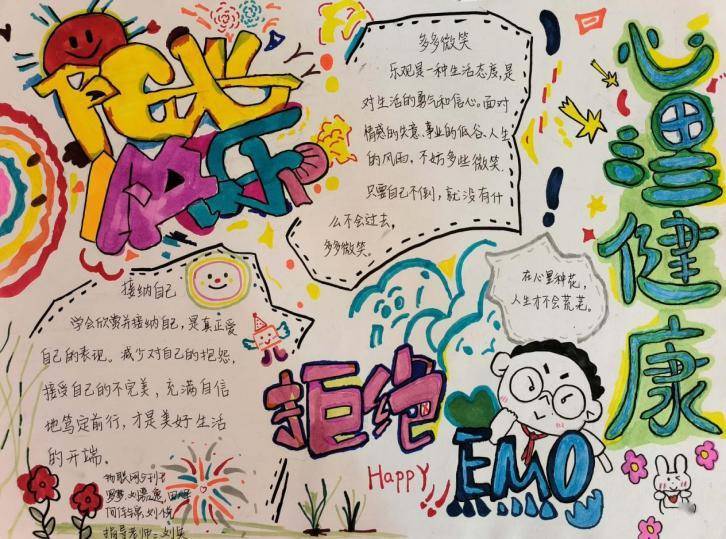 阳光
快乐
多多微笑
乐观是一种生活态度,是
对生活的勇气和信心.面对
情感的失意、事业的低谷、人生
的风雨,不妨多些微笑.
只要自己不倒,就没有什
么不会过去,
多多微笑.
心理健康
接纳自己
学会欣赏并接纳自己,是真正爱
自己的表现。减少对自己的抱怨,
接受自己的不完美,充满自信
地笃定前行,才是美好生活
的开端。
在心里种花,
人生才不会荒芜。
拒绝
EMO
HAPPY!!
物联网
指导老师:刘